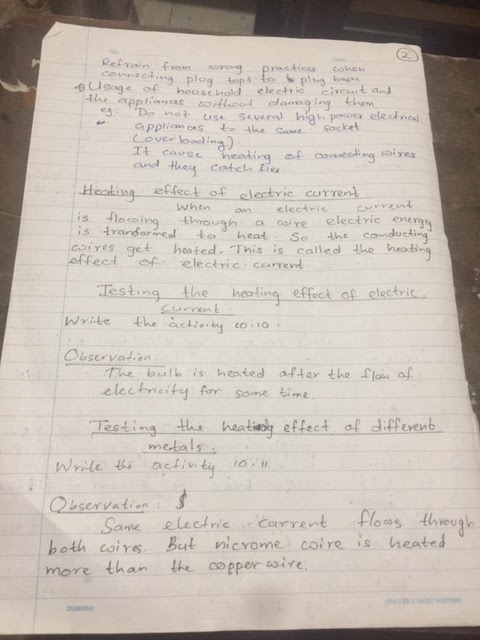 No
Date
2
Refrain from wrong practices when
connecting plug tops to plug base
Usage of household electric circuit and
the appliances without damaging them
eg: Do not use several high power electrical
appliances to the same socket
(over loading)
It cause heating of connecting wires
and they catch fier.
Heating effect of electric current.
When an electric current
is flowing through a wire electric energy
is transformed to heat. So the conducting
wires get heated. This is called the heating
effect of electric current.
Testing the heating effect of electric
current.
Write the activity 10.10.
Observation:
The bulb is heated after the flow of
electricity for some time.
Testing the heating effect of different
metals.
Write the activity 10.11
Observation:
Same electric current flows through
both wires. But nicrome wire is heated
more than the copper wire.